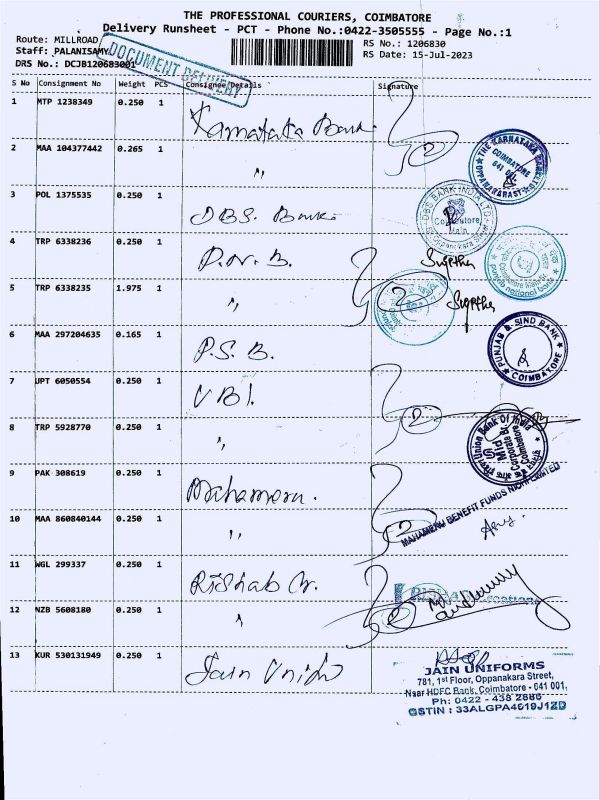 THE PROFESSIONAL COURIERS, COIMBATORE
Delivery Runsheet - PCT - Phone No.:0422-3505555 - Page No.:1
Route: MILLROAD RS No.: 1206830
Staff: PALANISAMY RS Date: 15-Jul-2023
DRS No.: DCJB120683001
DOCUMENT DELIVERY
S No Consignment No Weight PCS Consignee Details Signature
1 MTP 1238349 0.250 1 Karnataka Bank
2 MAA 104377442 0.265 1 ,,
THE KARNATAKA BANK LTD
COIMBATORE
641 001
3 POL 1375535 0.250 1 DBS. Bank
DBS BANK INDIA LTD
Coimbatore
Main
Oppanakara Street
4 TRP 6338236 0.250 1 P.N.B.
punjab national bank
5 TRP 6338235 1.975 1 ,,
6 MAA 297204635 0.165 1 P.S.B.
PUNJAB & SIND BANK
COIMBATORE
7 UPT 6050554 0.250 1 UBI.
8 TRP 5928770 0.250 1 ,,
Union Bank Of India
Mid
Corporate Br
Coimbatore
9 PAK 308619 0.250 1 Mahameru.
10 MAA 860840144 0.250 1 ,,
MAHAMERU BENEFIT FUNDS NIDHI LIMITED
11 WGL 299337 0.250 1 Rishab Cr.
12 NZB 5608180 0.250 1 ,,
13 KUR 530131949 0.250 1 Jain Unifo
JAIN UNIFORMS
781, 1st Floor, Oppanakara Street,
Naar HDFC Bank, Coimbatore - 641 001.
Ph: 0422 - 438 2886
GSTIN : 33ALGPA4619J1ZD